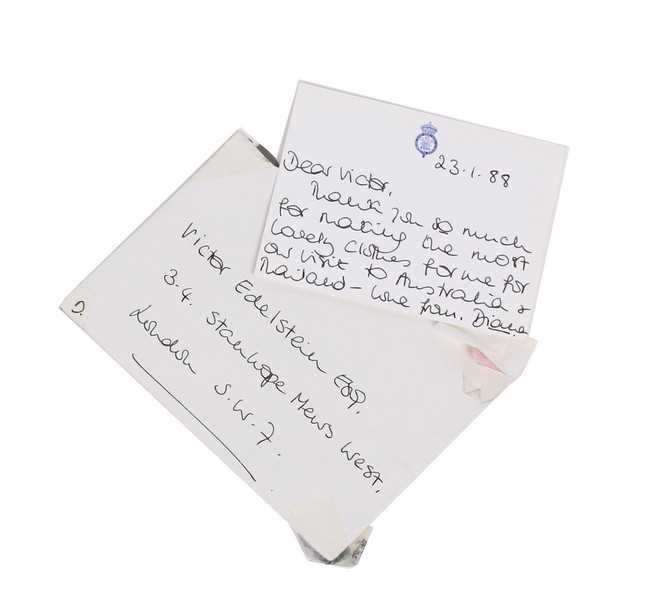 23.1.88
Dear Victor,
Thank you so much
for making the most
lovely clothes for me for
our visit to Australia &
Thailand - love from. Diana.
Victor Edelstein Esq.
3-4. Stanhope Mews West.
London S.W.7.
D.